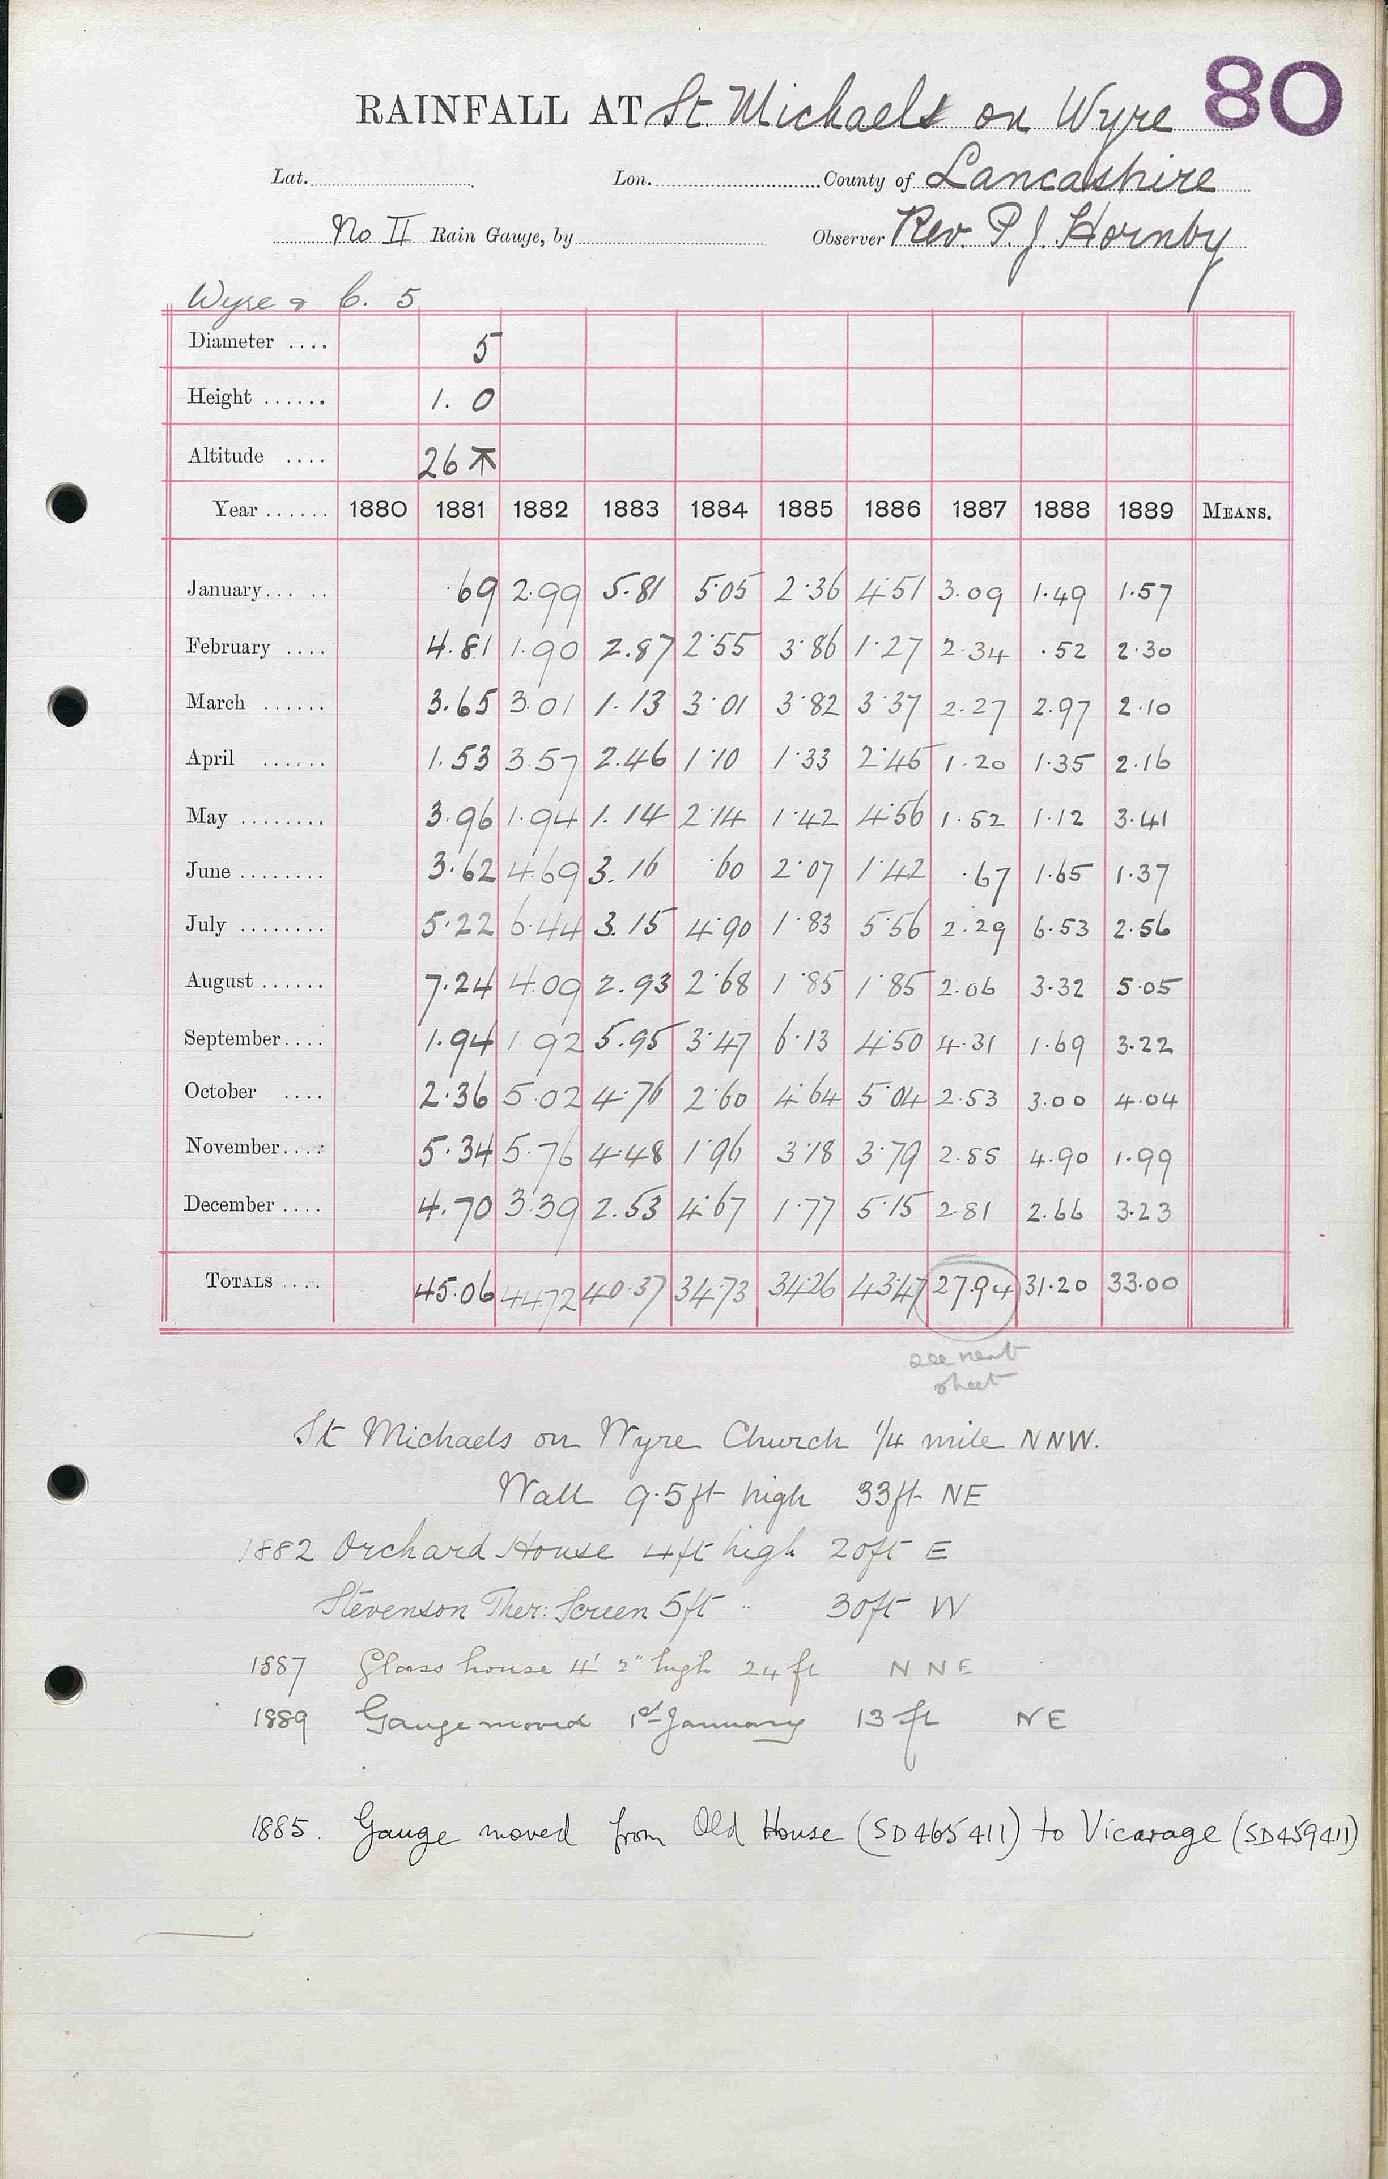 80
RAINFALL AT St. Michaels on Wyre
Lat. Lon. County of Lancashire
No II Rain Gauge, by Observer Rev. P. J. Hornby
Wyre & C. 5
Diameter .... 5
Height ...... 1. 0
Altitude .... 26
Year ...... 1880 1881 1882 1883 1884 1885 1886 1887 1888 1889 MEANS.
January... .. .69 2.99 5.81 5.05 2.36 4.51 3.09 1.49 1.57
February .... 4.81 1.90 2.87 2.55 3.86 1.27 2.34 .52 2.30
March ...... 3.65 3.01 1.13 3.01 3.82 3.37 2.27 2.97 2.10
April ...... 1.53 3.57 2.46 1.10 1.33 2.45 1.20 1.35 2.16
May ........ 3.96 1.94 1.14 2.14 1.42 4.56 1.52 1.12 3.41
June ........ 3.62 4.69 3.16 .60 2.07 1.42 .67 1.65 1.37
July ........ 5.22 6.44 3.15 4.90 1.83 5.56 2.29 6.53 2.56
August ...... 7.24 4.09 2.93 2.68 1.85 1.85 2.06 3.32 5.05
September.... 1.94 1.92 5.95 3.47 6.13 4.50 4.31 1.69 3.22
October .... 2.36 5.02 4.76 2.60 4.64 5.04 2.53 3.00 4.04
November.... 5.34 5.76 4.48 1.96 3.18 3.79 2.85 4.90 1.99
December .... 4.70 3.39 2.53 4.67 1.77 5.15 2.81 2.66 3.23
TOTALS .... 45.06 44.72 40.37 34.73 34.26 43.47 27.94 31.20 33.00
see next
sheet
St Michaels on Wyre Church 1/4 mile NNW.
Wall 9.5ft high 33ft NE
1882 Orchard House 4ft high 20ft E
Stevenson Ther: Screen 5ft " 30ft W
1887 Glass house 4' 2" high 24 ft NNE
1889 Gauge moved 1st January 13 ft NE
1885. Gauge moved from Old House (SD465411) to Vicarage (SD459411)